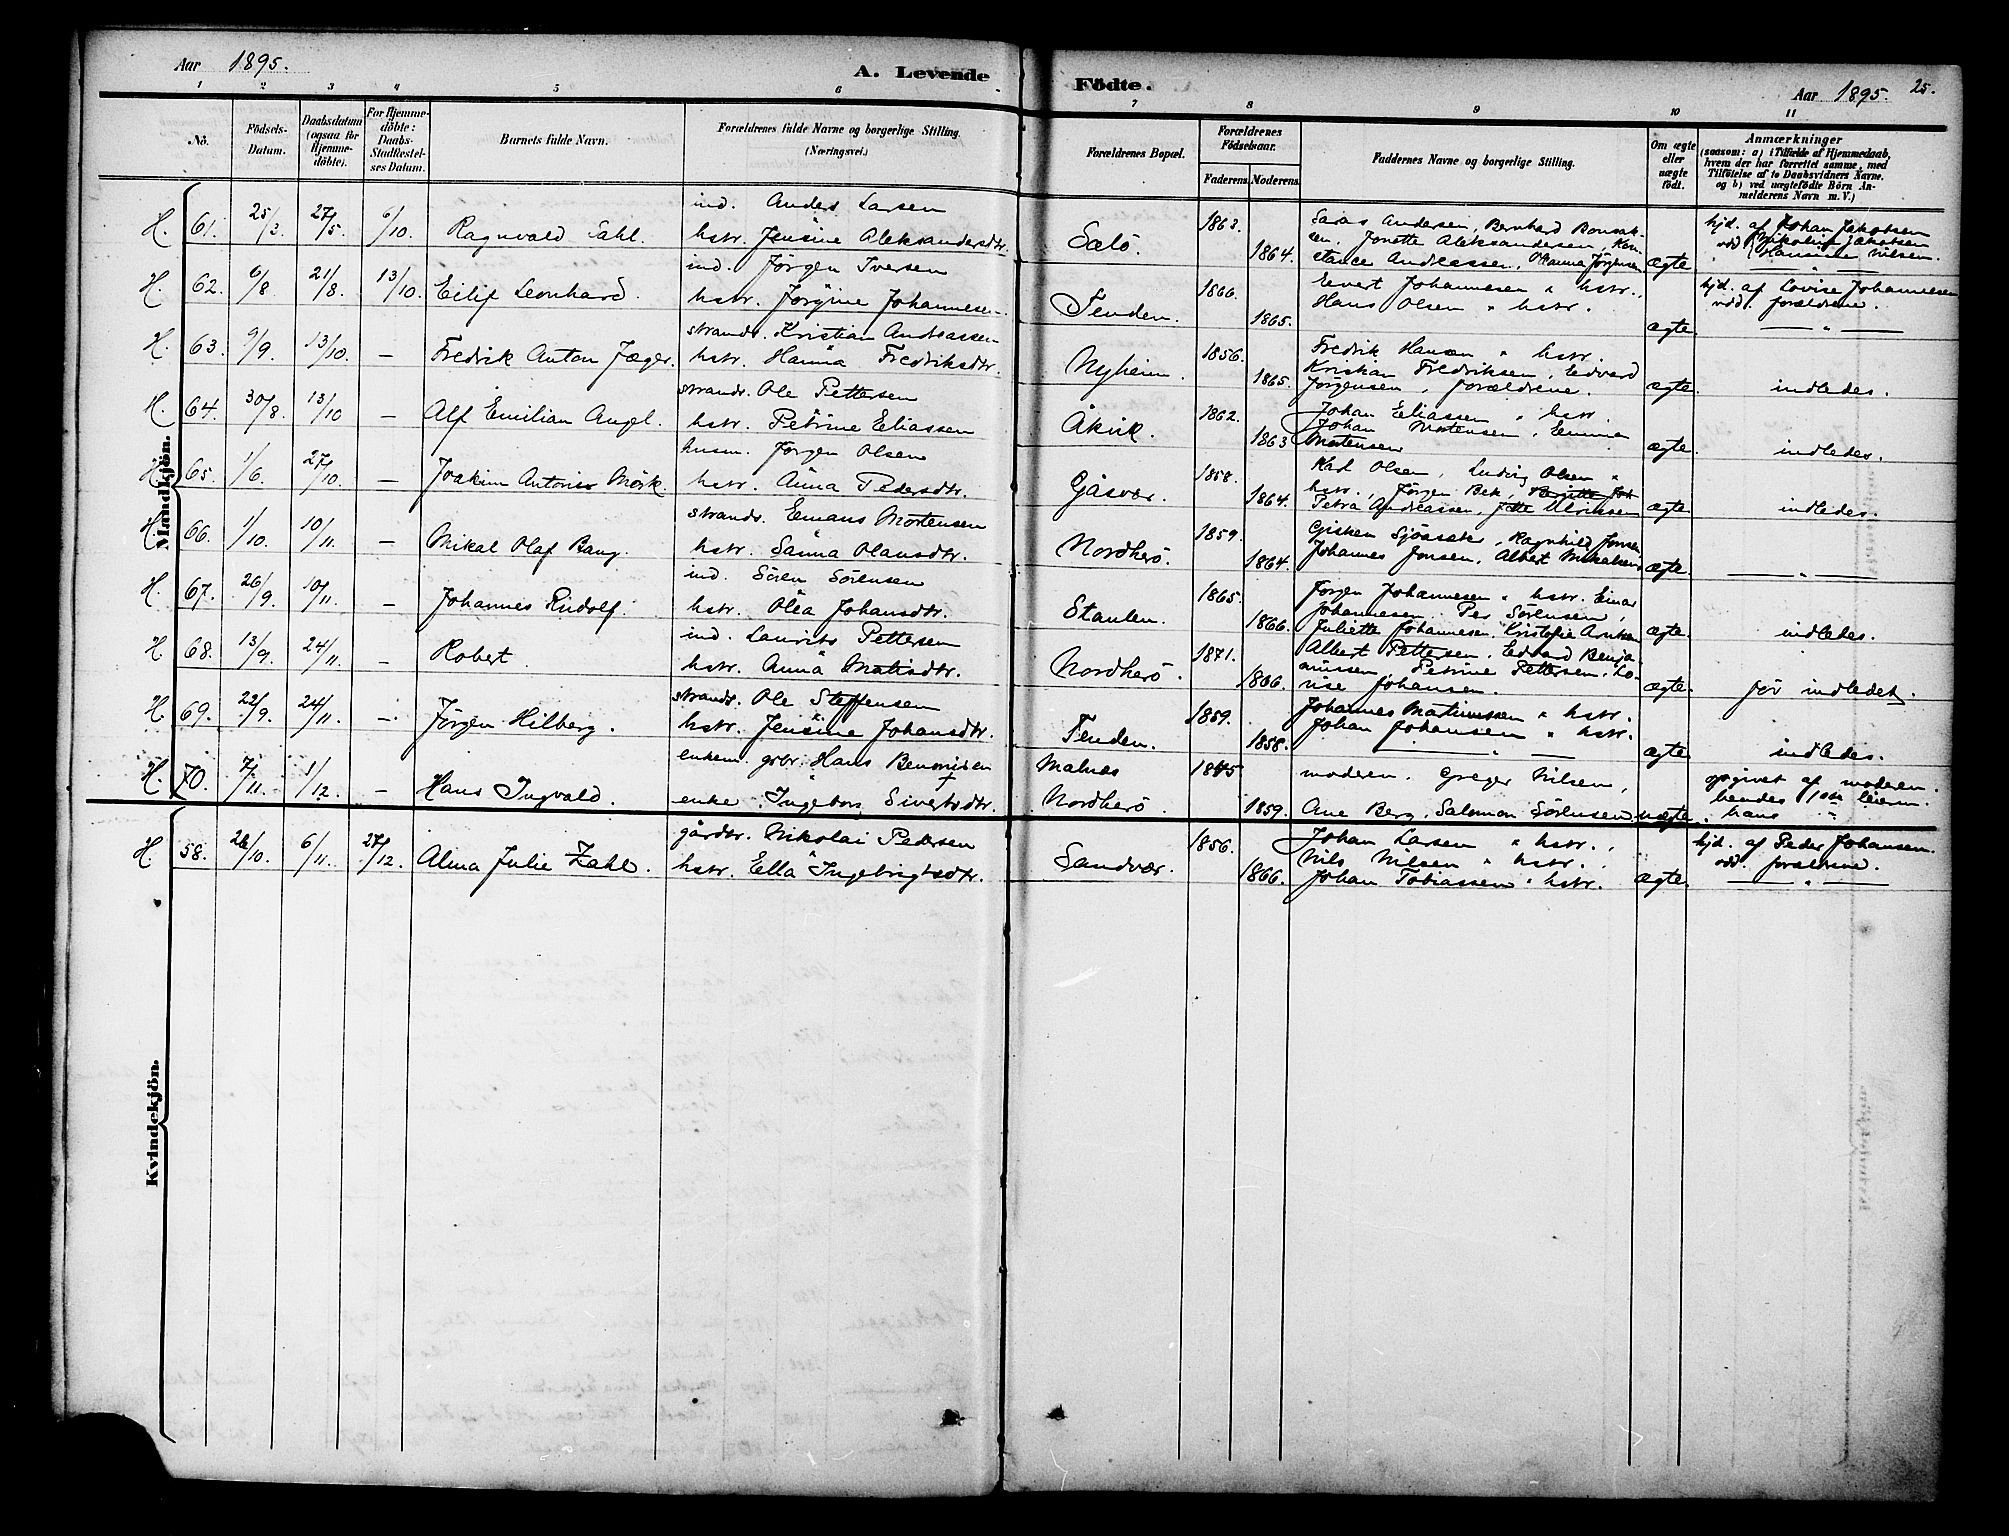 Aar 1895.
A. Levende
Födte.
Aar 1895.
25.
1 2 3 4 5 6 7 8 9 10 11
No.
Födsels-Datum.
Daabsdatum (ogsaa for Hjemme-döbte).
For Hjemme-döbte: Daabs-Stadfæstel-ses Datum.
Barnets fulde Navn.
Forældrenes fulde Navne og borgerlige Stilling. (Næringsvei.)
Forældrenes Bopæl.
Forældrenes Födselsaar.
Faderens. Moderens.
Faddernes Navne og borgerlige Stilling.
Om ægte eller uægte födt.
Anmærkninger
(saasom: a) i Tilfælde af Hjemmedaab,
hvem der har forrettet samme, med
Tilföielse af to Daabsvidners Navne,
og b) ved uægtefödte Börn An-
melderens Navn m. V.)
Mandkjön.
H. 61. 25/3 27/5. 6/10. Ragnvald Dahl. ind. Anders Larsen
hstr. Jensine Aleksandersdtr. Sælö. 1863. 1864.
Andersen, Bernhard Bonsak-
sen, Jonette Aleksandersen, Kon-
stance Andreassen, Jörgensen ægte
hjd. af Johan Jakobsen
vdd. Nikolai Jakobsen
Nilsen.
H. 62. 6/8 21/8. 13/10. Eilif Leonhard. ind. Jörgen Iversen
hstr. Jörgine Johannesen. Tenden. 1866. 1865.
Evert Johannesen " hstr.,
Hans Olsen " hstr. ægte
hjd. af Lovise Johannesen
vdd. forældrene.
— " —
H. 63. 9/9. 13/10. — Fredrik Anton Jæger. strands. Kristian Andreassen
hstr. Hanna Fredriksdtr. Nyheim. 1856. 1865.
Fredrik Hansen " hstr.
Kristian Fredriksen, Edvard
Jörgensen, forældrene. ægte. indledes.
H. 64. 30/8. 13/10 — Alf Emilian Angel. strands. Ole Pettersen
hstr. Petrine Eliassen Åkvik. 1862. 1863
Johan Eliassen " hstr.
Johan Mortensen, Emma
Mortensen ægte. indledes.
H. 65. 1/6. 27/10. — Joakim Antonius Mörk. husm. Jörgen Olsen
hstr. Anna Pedersdtr. Gåsvær. 1858. 1864.
Karl Olsen, Ludvig Olsen "
hstr., Jörgen Bek,
Petra Andreassen, Ulriksen ægte indledes.
H. 66. 1/10. 10/11. — Mikal Olaf Bang. strands. Emans Mortensen
hstr. Sanna Olausdtr. Nordherö. 1859. 1864.
Sjösæter, Ragnhild Jonsen,
Johannes Jonsen, Albert Mikalsen ægte. — " —
H. 67. 26/9. 10/11. — Johannes Rudolf. ind. Sören Sörensen
hstr. Olea Johansdtr. Staulen. 1865. 1866.
Jörgen Johannesen " hstr. Einar
Johannesen, Per Sörensen,
Juliette Johannesen, Kristofie ægte. indledes.
H 68. 13/9. 24/11. — Robert. ind. Laurits Pettersen
hstr. Anna Matisdtr. Nordherö. 1871. 1866.
Albert Pettersen, Edvard Benja-
minsen, Petrine Pettersen, Lo-
vise Johansen. ægte. för indledet.
H. 69. 22/9. 24/11. — Jörgen Hilberg. strands. Ole Steffensen
hstr. Jensine Johansdtr. Tenden. 1859. 1858.
Johannes Martinussen " hstr.
Johan Johansen " hstr.
— " — ægte indledes.
H. 70. 7/11. 1/12. — Hans Ingvald. enkem. grbr. Hans
enke Ingeborg Sivertsdtr. Malnæs
Nordherö. 1845 1859.
moderen, Greger Nilsen,
Ane Berg, Salomon Sörensen uægte.
opgivet af moderen.
hendes 10de leierm.
hans "
Kvindekjön.
H. 58. 26/10. 6/11. 27/12. Alma Julie Zahl. gårdbr. Nikolai Pedersen
hstr. Ella Ingebrigtsdtr. Sandvær. 1856. 1866.
Johan Larsen " hstr.,
Nils Nilsen " hstr.
Johan Tobiassen " hstr. ægte.
hjd. af Peder Johansen.
vdd. forældrene.
— " —